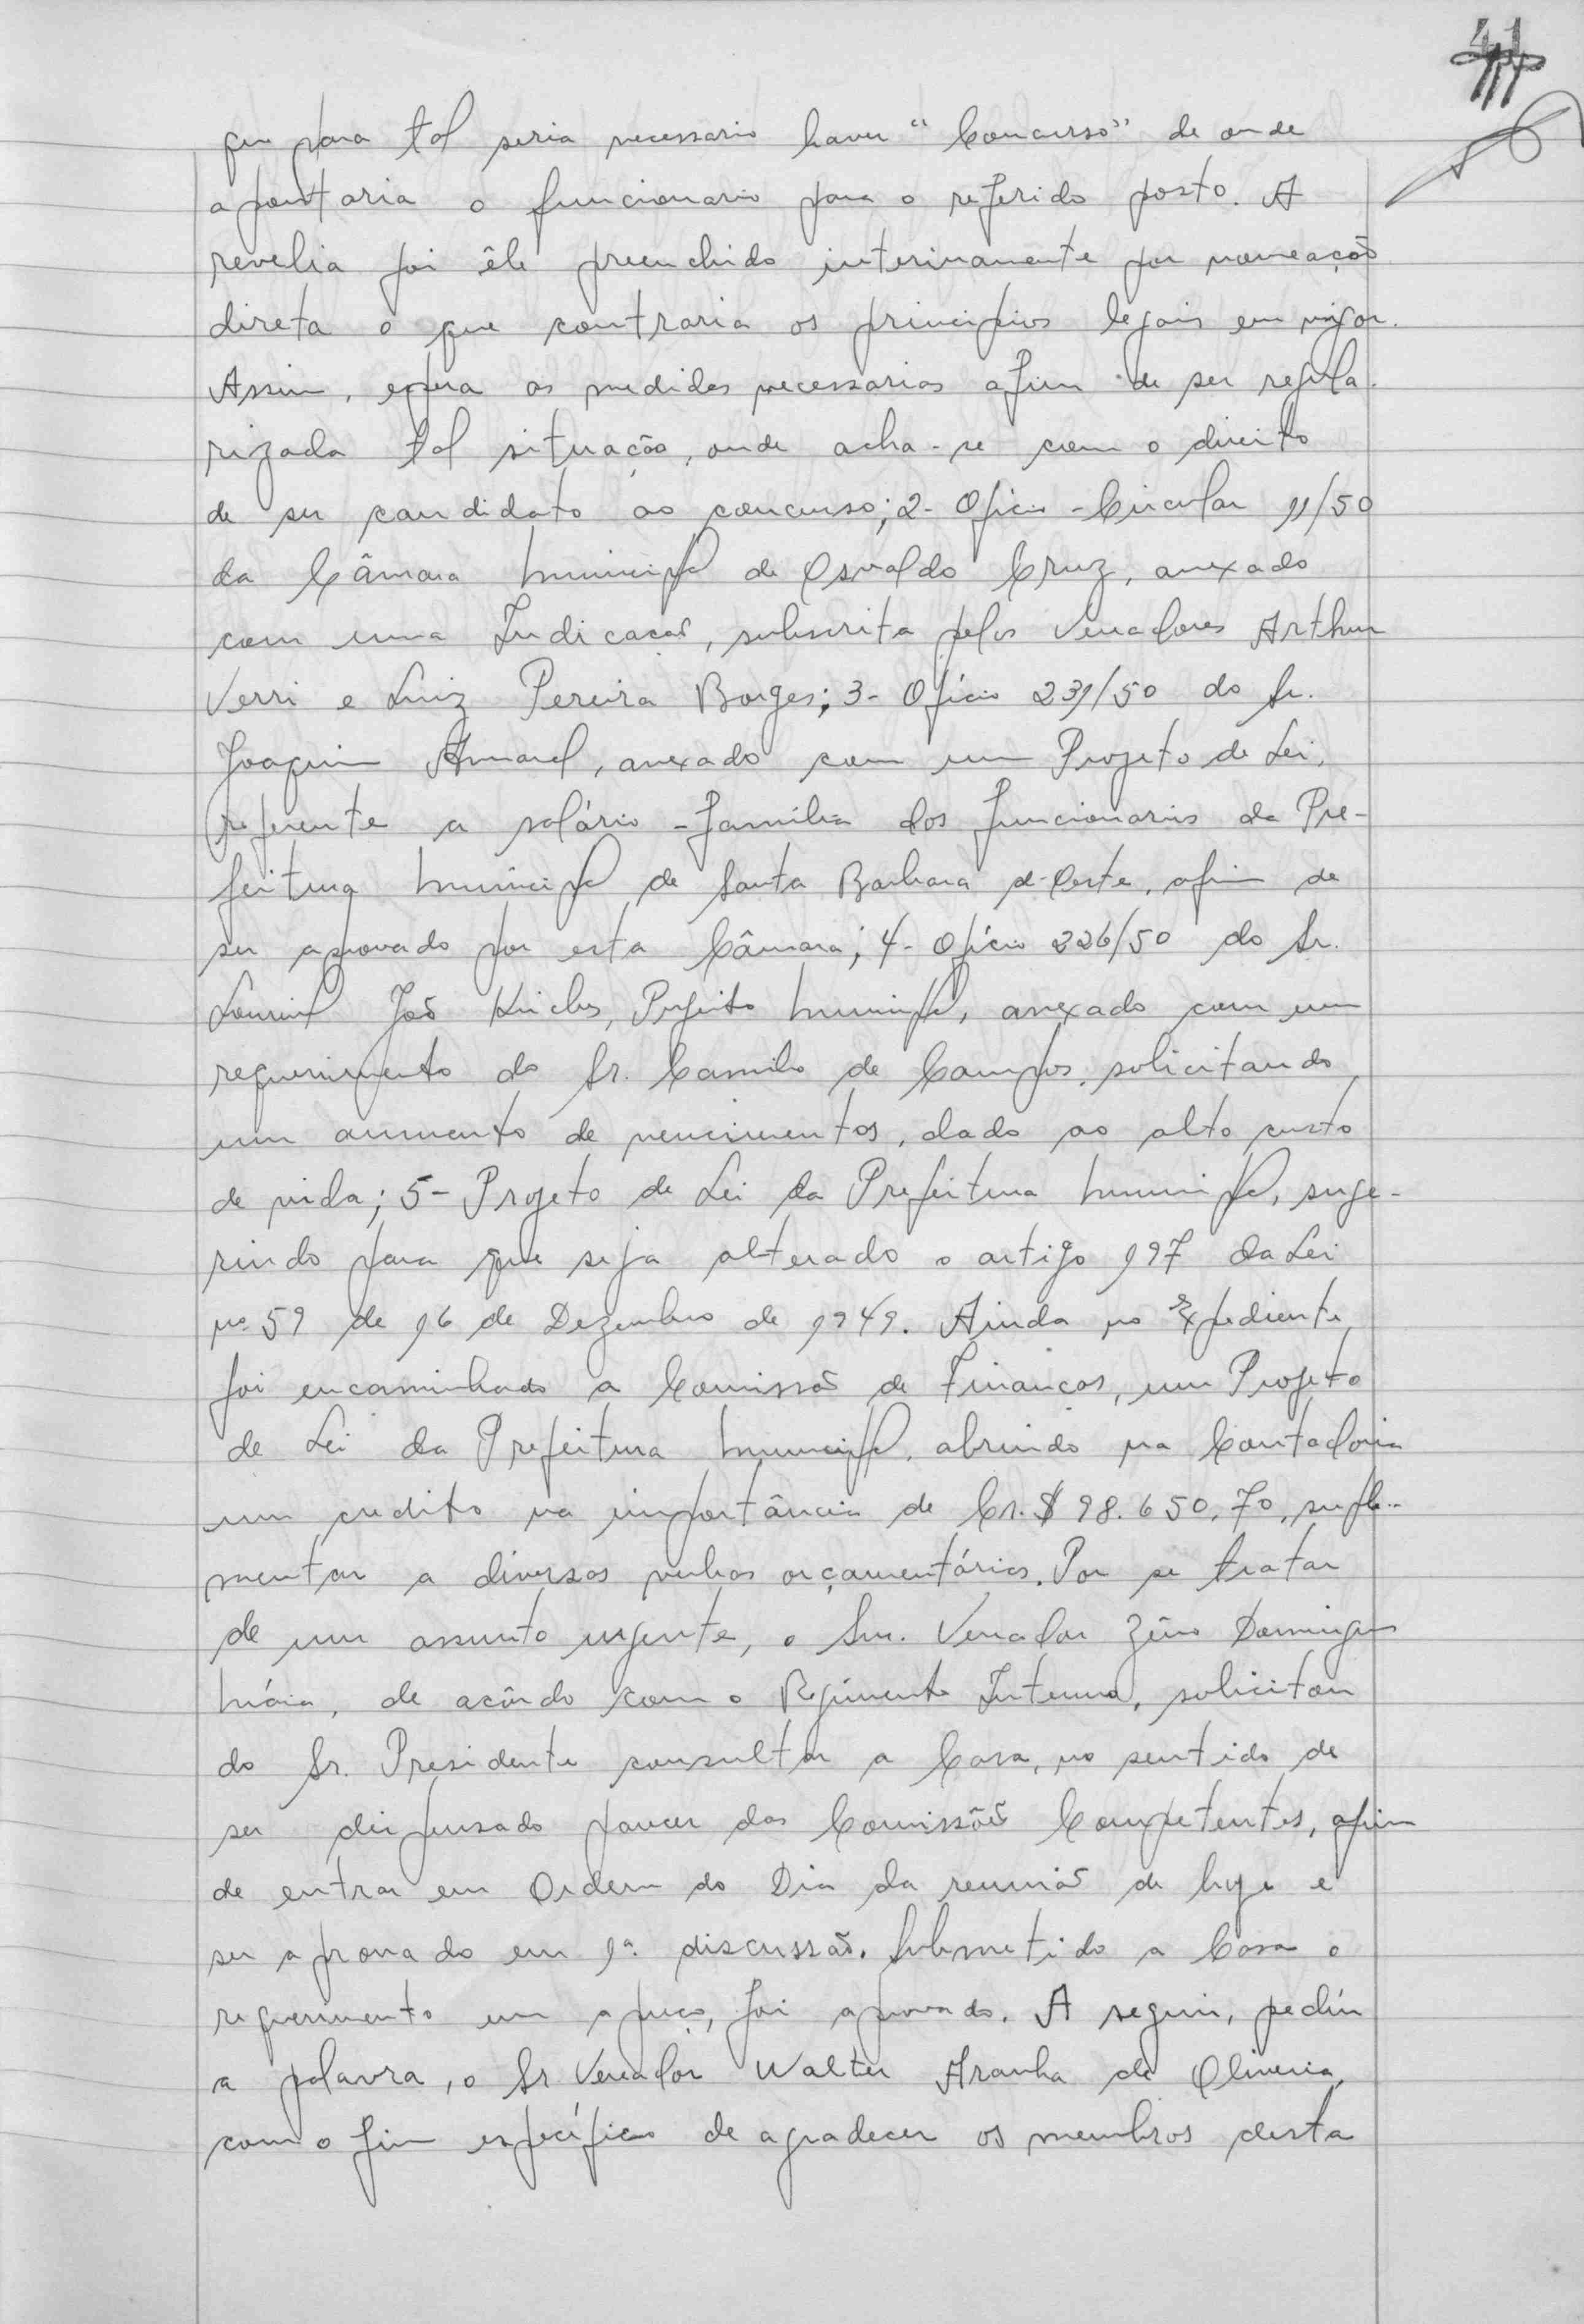 41
que para tal seria necessario haver "Concurso" de onde
apontaria o funcionario para o referido posto. A
revelia foi êle preenchido interinamente por nomeação
direta o que contraria os principios legais em vigor.
Assim, espera as medidas necessarias afim de ser regula-
rizada tal situação, onde acha-se com o direito
de ser candidato ao concurso; 2- Oficio-Circular 11/50
da Câmara Municipal de Osvaldo Cruz, anexado
com uma Indicação, subscrita pelos Vereadores Arthur
Verri e Luiz Pereira Borges; 3- Ofício 231/50 do Sr.
Joaquim Amaral, anexado com um Projeto de Lei,
referente a salário-familia dos funcionarios da Pre-
feitura Municipal de Santa Barbara d'Oeste, afim de
ser aprovado por esta Câmara; 4- Ofício 226/50 do Sr.
João Prefeito Municipal, anexado com um
requerimento do Sr. Camilo de Campos, solicitando
um aumento de vencimentos, dado ao alto custo
de vida; 5- Projeto de Lei da Prefeitura Municipal, suge-
rindo para que seja alterado o artigo 197 da Lei
nº 59 de 16 de Dezembro de 1949. Ainda no Expediente,
foi encaminhado a Comissão de Finanças, um Projeto
de Lei da Prefeitura Municipal, abrindo na Contadoria
um credito na importância de Cr.$ 98.650,70, suple-
mentar a diversas verbas orçamentárias. Por se tratar
de um assunto urgente, o Snr. Vereador Zêno Domingues
Máia, de acôrdo com o Regimento Interno, solicitou
do Sr. Presidente consultar a Casa, no sentido de
ser dispensado parecer das Comissões Competentes, afim
de entrar em Ordem do Dia da reunião de hoje e
ser aprovado em 1ª discussão. Submetido a Casa o
requerimento em apreço, foi aprovado. A seguir, pediu
a palavra, o Sr Vereador Walter Aranha de Oliveira,
com o fim específico de agradecer os membros desta